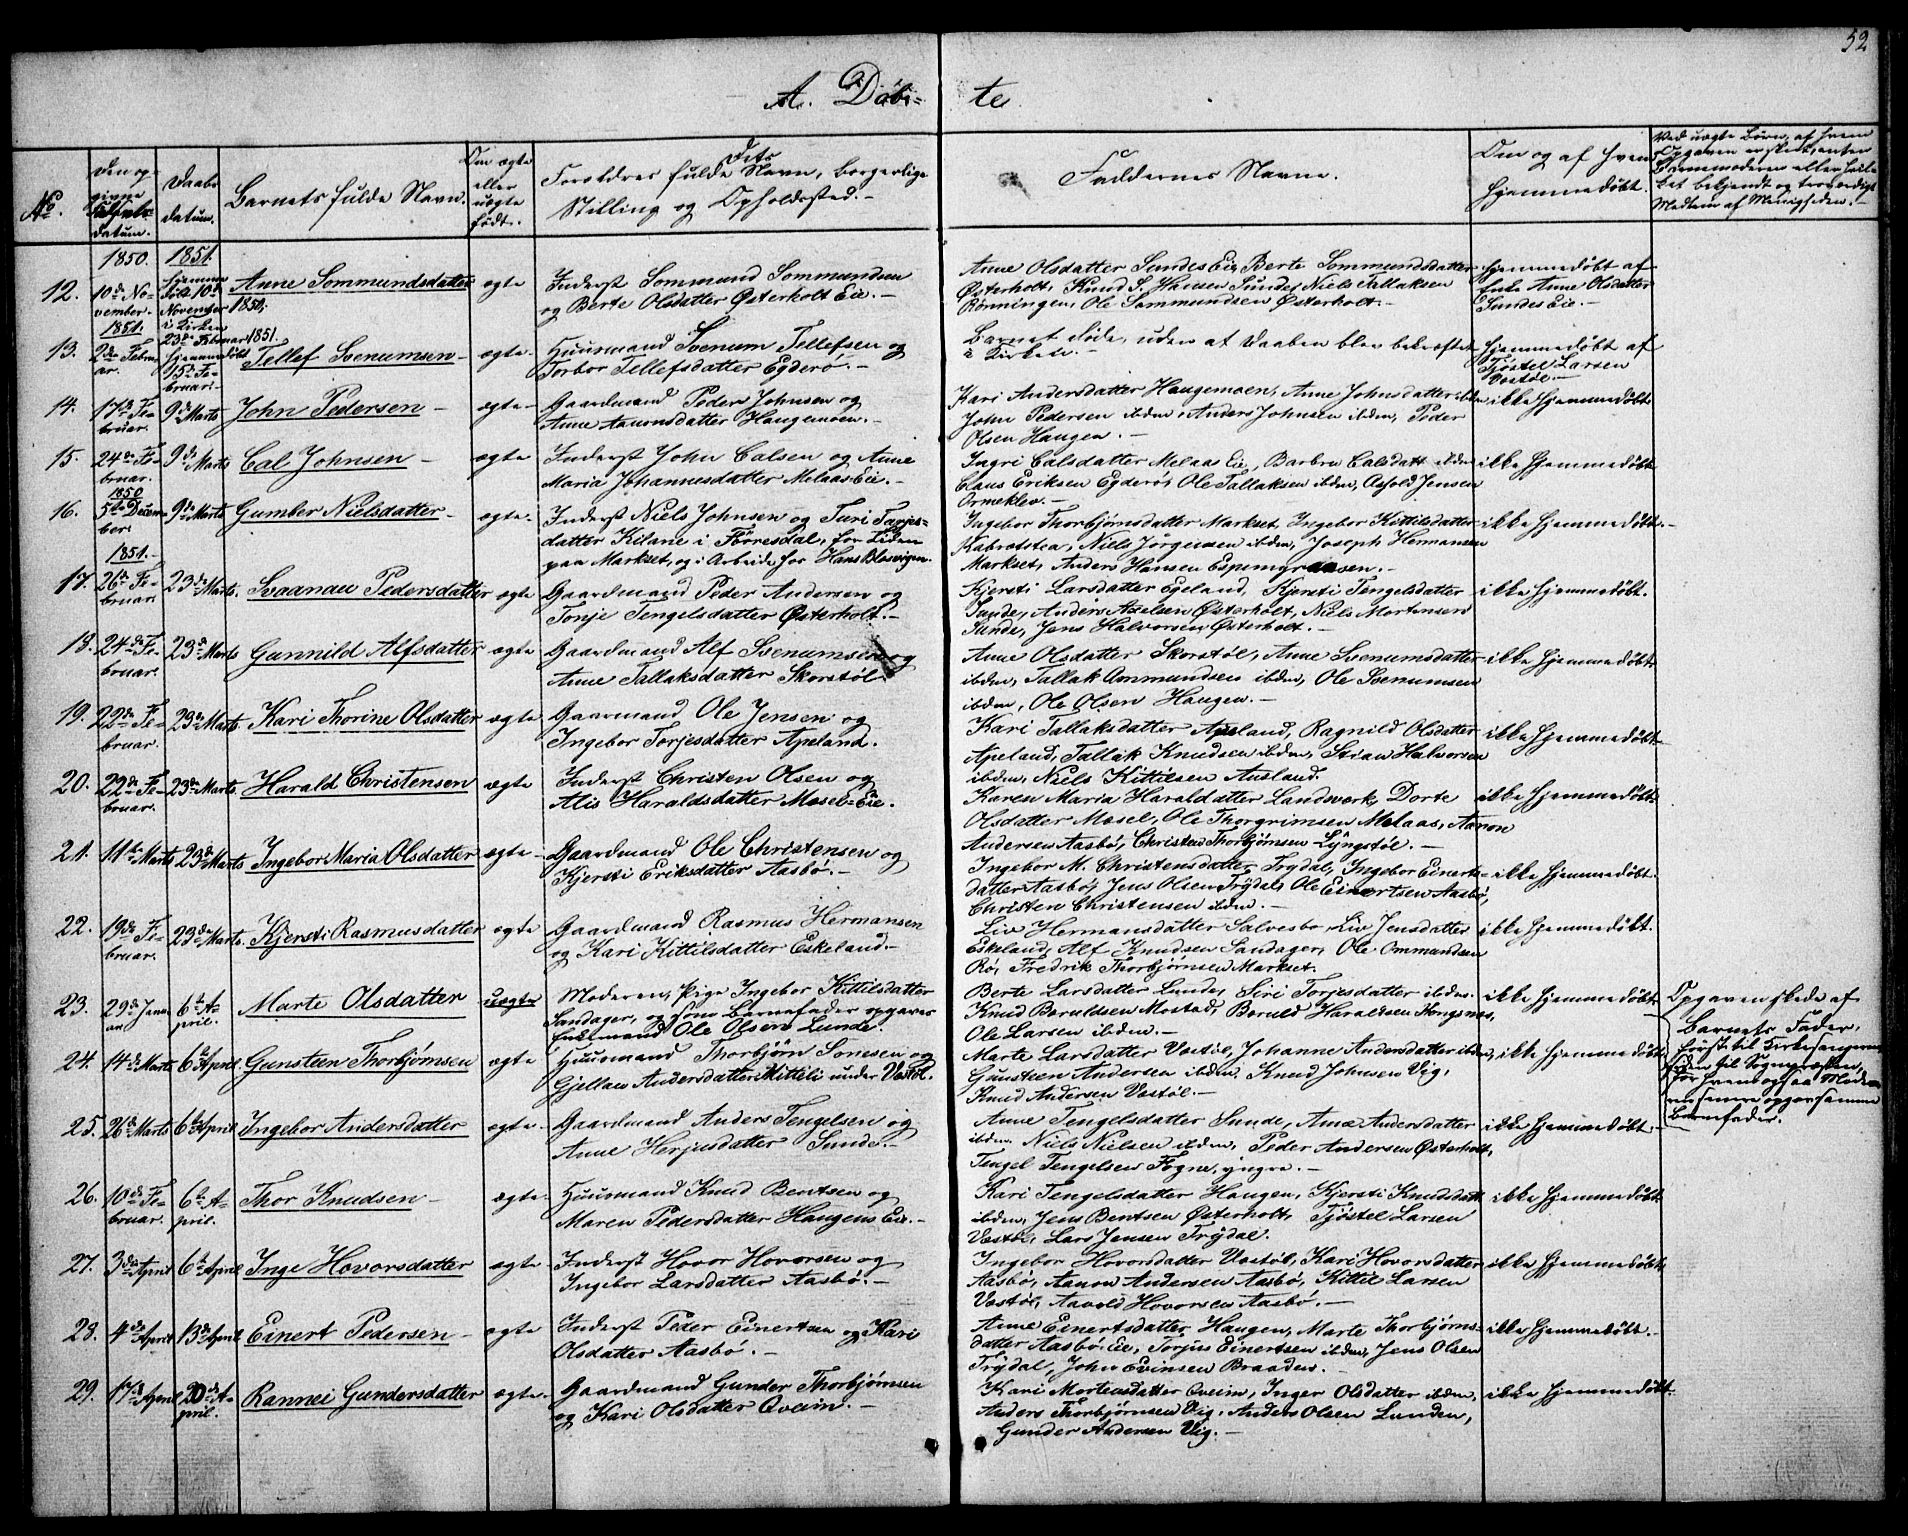 52
A. Døb=
te
No.
Den op-
givne
Fødsels-
datum.
Daabs
datum.
Barnets fulde Navn.
Om ægte
eller
uægte
født.
Dets
Forældres fulde Navn, borgerlige
Stilling og Opholdssted.-
Faddernes Navne.
Om og af hvem
hjemmedøbt.
Ved uægte Børn, af hvem
Opgaven er skeet, enten
Barnemoderen eller hælle
det bekjendt og troværdigt
Medlem af Menigheden.-
1850.
1851.
12.
10de No-
vember.
hjemme
døbt 10de
November
1850,
i Kirken
23de Februar 1851.
Anne Sommundsdatter
ægte
Inderst Sommund Sommundsen
og Berte Olsdatter Østerholt Eie.-
Anne Olsdatter Sundes Eie, Berte Sommundsdatter
Østerholt, Knud S. Hansen Sunde, Niels Tallaksen
Rønningen, Ole Sommundsen Østerholt.-
hjemmedøbt af
Enke Anne Olsdatter
Sundes Eie.-
1851.
13.
2den Febru
ar.
hjemmedøbt
15de Fe-
bruar.-
Tellef Svenumsen-
ægte-
Huusmand Svenum Tellefsen og
Torbor Tellefsdatter Egderø.-
Barnet døde, uden at Daaben blev bekræftet
i Kirken.-
hjemmedøbt af
Tjøstel Larsen
Vastøl.-
14.
17de Fe-
bruar.
9de Marts
John Pedersen-
ægte-
Gaardmand Peder Johnsen og
Anne Aanonsdatter Haugemoen.-
Kari Andersdatter Haugemoen, Anne Johnsdatter ibden
John Pedersen ibden, Anders Johnsen ibden, Peder
Olsen Haugen.-
ikke hjemmedøbt
15.
24de Fe-
bruar.
9de Marts
Cal Johnsen-
ægte
Inderst John Calsen og Anne
Maria Johannesdatter Melaas Eie.-
Ingri Calsdatter Melaas Eie, Barbru Calsdatt ibden
Claus Eriksen Egderø, Ole Tallaksen ibden, Asjold Jensen
Ormeklev.-
ikke hjemmedøbt
1850
16.
5te Decem-
ber.
9de Marts
Gumber Nielsdatter-
ægte-
Inderst Niels Johnsen og Turi Tarjes-
datter Kilane i Törresdal, for Tiden
paa Markset, og i Arbeide for Hans Olosvigen.
Ingebor Thorbjørnsdatter Markset, Ingebor Kittilsdatter
Kabrotsten, Niels Jørgensen ibden, Joseph Hermansen
Markset, Anders Hansen Espemyraasen.-
ikke hjemmedøbt.-
1851.-
17.
26de Fe-
bruar.
23de Marts.
Svaanau Pedersdatter
ægte
Gaardmand Peder Andersen og
Tonje Tengelsdatter Østerholt.-
Kjersti Larsdatter Egeland, Kjersti Tengelsdatter
Sunde, Anders Axelsen Østerholt, Niels Mortensen
Sunde, Jens Halvorsen Østerholt.-
ikke hjemmedøbt.
18.
24de Fe-
bruar.
23de Marts
Gunnild Alfsdatter
ægte
Gaardmand Alf Svenumsen og
Anne Tallaksdatter Skorstøl.
Anne Olsdatter Skorstøl, Anne Svenumsdatter
ibden, Tallak Ommundsen ibden, Ole Svenumsen
ibden, Ole Olsen Haugen.-
ikke hjemmedøbt
19.
22de Fe-
bruar.
23de Marts
Kari Thorine Olsdatter
ægte
Gaarmand Ole Jensen og
Ingebor Torjesdatter Apeland.
Kari Tallaksdatter Apeland, Ragnild Olsdatter
Apeland, Tallak Knudsen ibden, Stian Halvorsen
ibden, Niels Kittilsen Ausland.
ikke hjemmedøbt
20.
22de Fe-
bruar.
23de Marts.
Harald Christensen
ægte
Inderst Christen Olsen og
Alis Haraldsdatter Mosel-Eie.
Karen Maria Haraldatter Landværk, Dorte
Olsdatter Mosel, Ole Thorgrimsen Melaas, Aanon
Andersen Aasbø, Christen Thorbjørnsen Lyngstøl.-
ikke hjemmedøbt
21.
11te Marts
23de Marts
Ingebor Maria Olsdatter
ægte-
Gaardmand Ole Christensen og
Kjersti Eriksdatter Aasbø.-
Ingebor M. Christensdatter Trydal, Ingebor Einerts-
datter Aasbø, Jens Olsen Trydal, Ole Einertsen Aasbø,
Christen Christensen ibden.-
ikke hjemmedøbt.
22.
19de Fe-
bruar.
23de Marts.
Kjersti Rasmusdatter
ægte
Gaardmand Rasmus Hermansen
og Kari Kittilsdatter Eskeland.-
Liv Hermansdatter Salvesbo, Liv Jensdatter
Eskeland, Alf Knudsen Sandager, Ole Ommundsen
Rø, Fredrik Thorbjørnsen Markset.
ikke hjemmedøbt.
23.
29de Janu
ar.
6te A-
pril.
Marte Olsdatter
uægte
Moderen, Pige Ingebor Kittilsdatter
Sandager, og som Barnefader opgaves
Enkemand Ole Olsen Lunde.
Berte Larsdatter Lunde, Siri Torjesdatter ibden
Knud Boruldsen Mostad, Boruld Haraldsen Kongsnæs,
Ole Larsen ibden.-
ikke hjemmedøbt
Opgaven skede af
Barnets Fader,
først til Kirkesangeren
siden til Sognepræsten,
for hvem ogsaa Moder
en senere opgav samme
Barnefader.
24.
14de Marts
6te April
Gunsteen Thorbjørnsen
ægte
Huusmand Thorbjørn Sonesen og
Gjellau Andersdatter Mitteli under Vastøl.
Marte Larsdatter Vastøl, Johanne Andersdatter ibden,
Gunsteen Andersen ibden, Knud Johnsen Vig,
Knud Andersen Vastøl.-
ikke hjemmedøbt
25.
26de Marts
6te April
Ingebor Andersdatter
ægte-
Gaardmand Anders Tengelsen og
Anne Herjusdatter Sunde.-
Anne Tengelsdatter Sunde, Anne Andersdatter
ibden, Niels Nielsen ibden, Peder Andersen Østerholt,
Tengel Tengelsen Fogne, yngre.-
ikke hjemmedøbt.-
26.
10de Fe-
bruar.
6te A-
pril.
Thor Knudsen-
ægte-
Huusmand Knud Bentsen og
Maren Pedersdatter Haugens Eie.-
Kari Tengelsdatter Haugen, Kjersti Knudsdatt
ibden, Jens Bentsen Østerholt, Tjøstel Larsen
Vastøl, Lars Jensen Trydal.
ikke hjemmedøbt
27.
3die April
6te April
Inge Hovorsdatter
ægte
Inderst Hovor Hovorsen og
Ingebor Larsdatter Aasbø.-
Ingebor Hovorsdatter Vastøl, Kari Hovorsdatter
Aasbø, Aanon Andersen Aasbø, Kittil Larsen
Vastøl, Aavold Hovorsen Aasbø.-
ikke hjemmedøbt
28.
4de April
13de April
Einert Pedersen-
ægte
Inderst Peder Einertsen og Kari
Olsdatter Aasbø.-
Anne Einertsdatter Haugen, Marte Thorbjørns-
datter Aasbø Eie, Torjus Einertsen ibden, Jens Olsen
Trydal, John Evinsen Braaden.-
ikke hjemmedøbt.-
29.
17de April
20de A-
pril.
Rannei Gundersdatter
ægte-
Gaardmand Gunder Thorbjørnsen
og Kari Olsdatter Qveim.-
Kari Mortensdatter Qveim, Inger Olsdatter ibden,
Anders Thorbjørnsen Vig, Anders Olsen Lunden,
Gunder Andersen Vig.-
ikke hjemmedøbt.